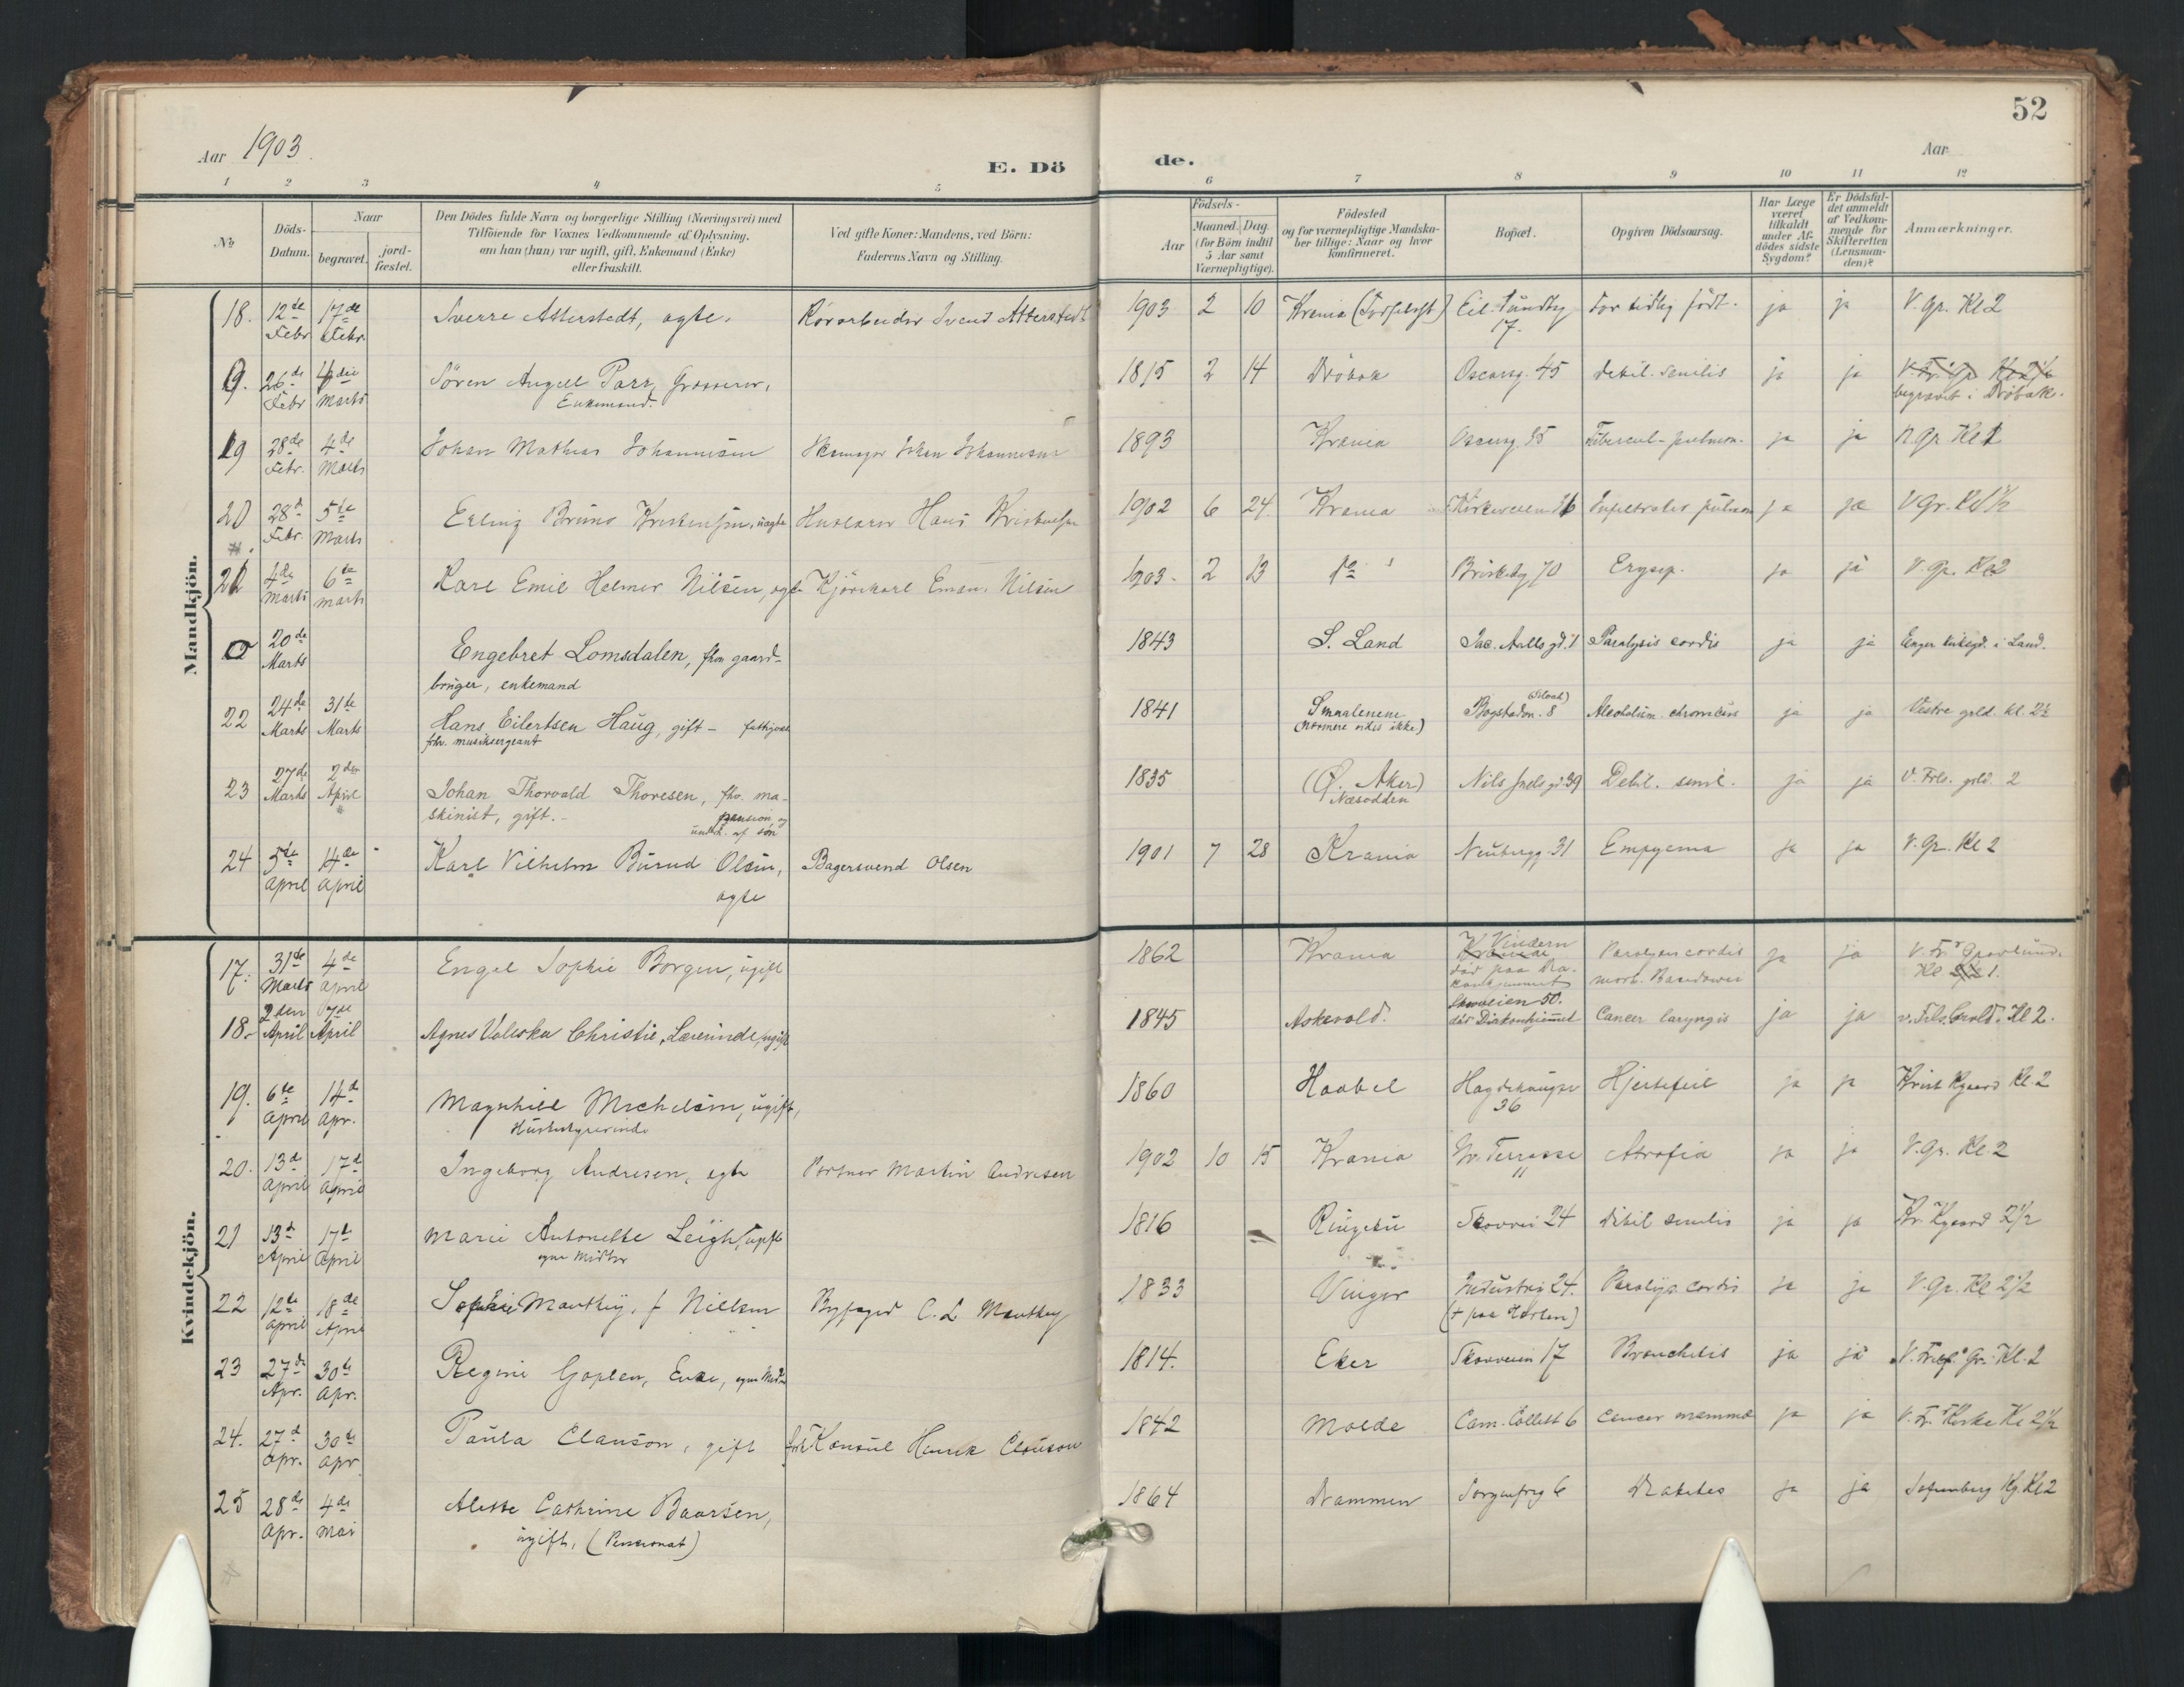 52
Aar 1903.
E. Döde.
Aar
1 2 3 4 5 6 7 8 9 10 11 12
No
Döds-Datum.
Naar
begravet.
jord-fæstet.
Den Dödes fulde Navn og borgerlige Stilling (Næringsvei) med
Tilföiende for Voxnes Vedkommende af Oplysning,
om han (hun) var ugift, gift, Enkemand (Enke)
eller fraskilt.
Ved gifte Koner: Mandens, ved Börn:
Faderens Navn og Stilling.
Födsels-
Aar
Maaned.
Dag.
(for Börn indtil
5 Aar samt
Værnepligtige).
Födested
og for værnepligtige Mandska-
ber tillige: Naar og hvor
konfirmeret.
Bopæl.
Opgiven Dödsaarsag.
Har Læge
været
tilkaldt
under Af-
dödes sidste
Sygdom?
Er Dödsfal-
det anmeldt
af Vedkom-
mende for
Skifteretten
(Lensman-
den)?
Anmærkninger.
Mandkjön.
18. 12de Febr 17de Febr. Sverre Atterstedt, ægte. Rörarbeider Svend Atterstedt 1903 2 10 Krania Eil. Sundtsg 17. For tidlig födt. ja ja V. Gr. Kl 2
26de Febr Marts Sören Angell Parr, Grosserer,
Enkemand. 1815 2 14 Dröbak Oscarsg. 45 Debil. senilis ja ja
begravet i Dröbak.
19 28de Febr. 4de Marts Johan Mathias Johannesen Skomager Johan Johannesen 1893 Krania Oscarsg. Tubercul. pulmon. ja ja Kl 1
20 28d Febr. 5te Marts Erling Bruno Kristensen, uægte Hans Kristensen 1902 6 24 Krania Kirkeveien ja ja V Gr. Kl 1½
21 4de Marts 6te Marts Karl Emil Helmer Nilsen, ægte Kjörekarl Eman. Nilsen 1903 2 13 Briskeby 70 Erysip. ja ja V. Gr. Kl 2
20de Marts Engebret Lomsdalen, fhv gaard-
bruger, enkemand 1843 S. Land Jac. Aalls gd. 1 Paralysis cordis ja ja Enger kirkegd. i Land.
22 24de Marts 31te Marts Hans Eilertsen Haug, gift –
fhv. musiksergeant 1841 Smaalenene
(nærmere vides ikke) Bogstadvn. 8 Alcoholism. chronicus ja ja Vestre gvld. kl. 2½
23 27de Marts 2den April Johan Thorvald Thoresen, fhv. ma-
skinist, gift. –
pension og
underh. af sön 1835 (Ö. Aker)
Næsodden Nils Juels gd. 39 Debil. senil. ja ja V. Frls. gvld. 2
24 5te April 14de April Karl Vilhelm Burud Olsen,
ægte Bagersvend Olsen 1901 7 28 Krania Neubergg. 31 Empyema ja ja V. Gr. Kl 2
Kvindekjön.
17. 31te Marts 4de April Engel Sophie Borgen, ugift 1862 Krania Vindern
död paa Dia-
konhjemmet Paralysis cordis
morb. Basedowii ja ja V. Fr. Gravlund.
Kl 1.
18. 2den April 7de April Agnes Valeska Christie, Lærerinde, ugift 1845 Askevold. 50.
död Diakonhjemmet Cancer laryngis ja ja v. Frls. Gvld. Kl 2.
19. 6te April 14de Apr. Magnhild Michelsen, ugift,
Husbestyrerinde 1860 Haabel Hægdehaugsv
36 Hjertefeil ja ja Krist Kgaard Kl. 2
20. 13de April 17de April Ingeborg Andresen, ægte Portner Martin Andresen 1902 10 15 Krania Terrasse
11 Atrofia ja ja V. Gr. Kl. 2
21 13de April 17de April Marie Antonette Leigh, ugift
egne Midler 1816 Skovvei 24 Debil senilis ja ja Kr. Kgaard 2½
22 12te April 18de April Sophie Manthey, f Nielsen Byfoged C. L. Manthey 1833 Vinger Industrig 24.
(+ paa Horten) Paralys. cordis ja ja V. Gr. Kl 2½
23 27de Apr. 30te Apr. Regine Goplen, Enke, egne Midl. 1814. Eker Skovveien 17 Bronchitis ja ja V. Frels. Gr. Kl. 2
24. 27de Apr. 30te Apr Paula Clauson, gift Konsul Henrik Clauson 1842 Molde Cam. Collett 6 Cancer mammæ ja ja V. Fr. Kirke Kl 2½
25 28de Apr. 4de Mai Alette Cathrine Baarsen,
ugift, (Pensionat) 1864 Drammen Sorgenfrig 6 Diabetes ja ja Sofienberg Kg. Kl 2